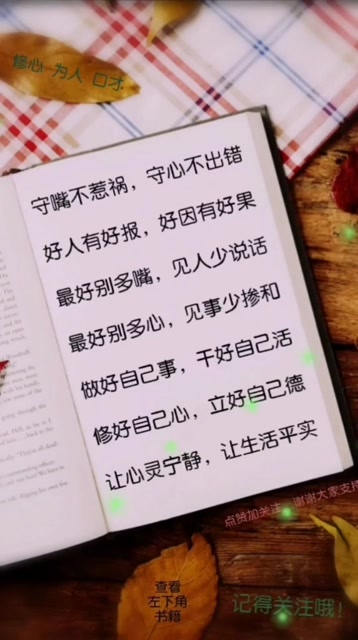 修心 为人 口才
守嘴不惹祸，守心不出错
好人有好报，好因有好果
最好别多嘴，见人少说话
最好别多心，见事少掺和
做好自己事，干好自己活
修好自己心，立好自己德
让心灵宁静，让生活平实
点赞加关注，谢谢大家支持
查看
左下角
书籍
记得关注哦！